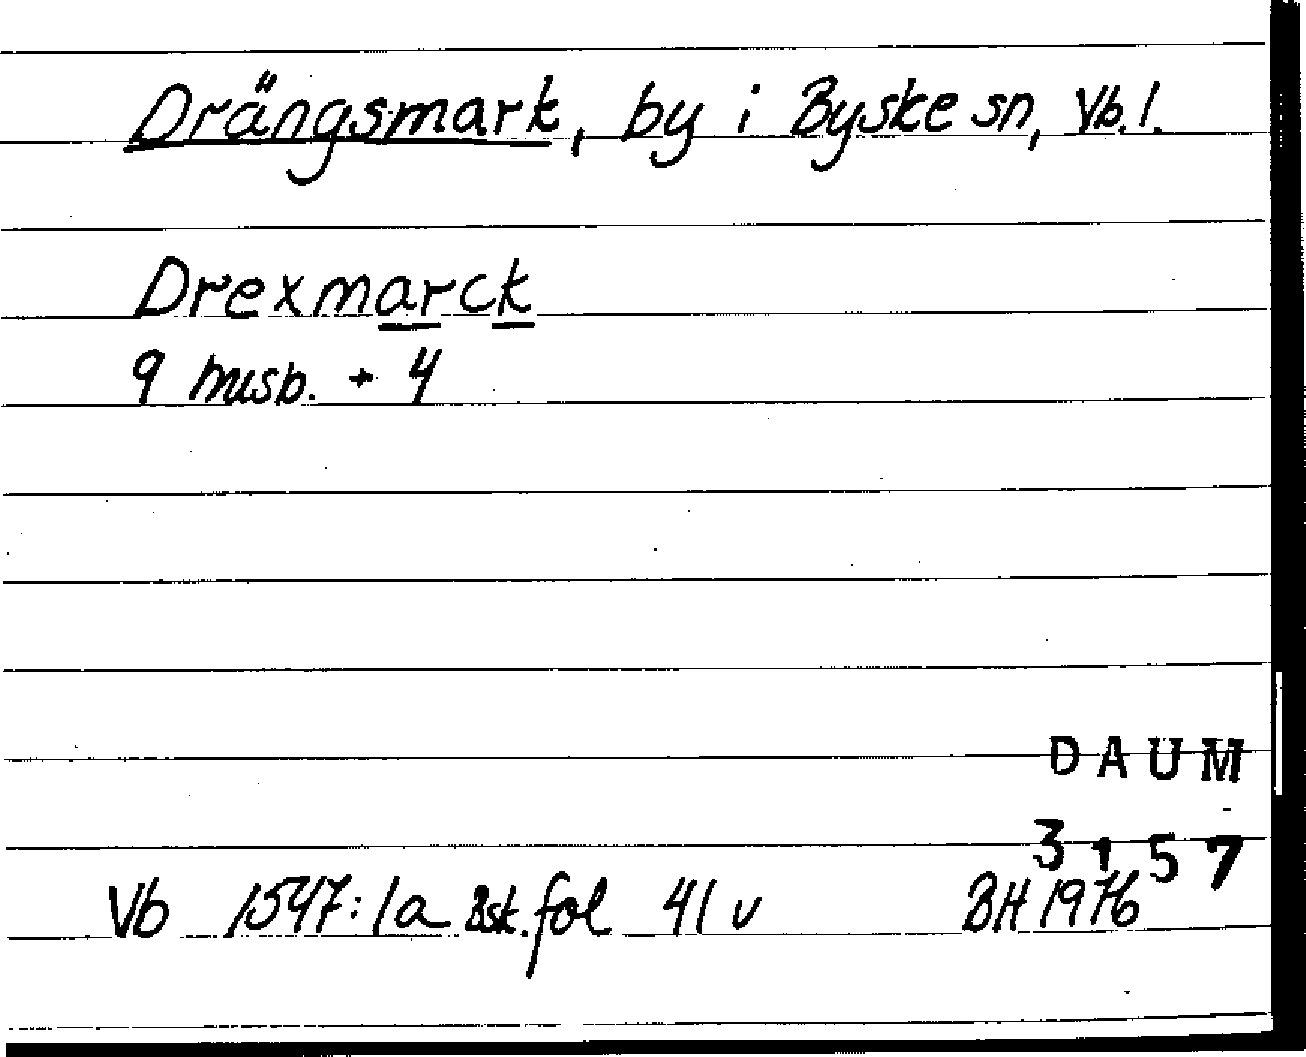 Drängsmark, by i Byske sn, Vb.l.
Drexmarck
9 husb. + 4
DAUM
3157
Vb 1547:1a Bsk. fol 41 v BH 1976